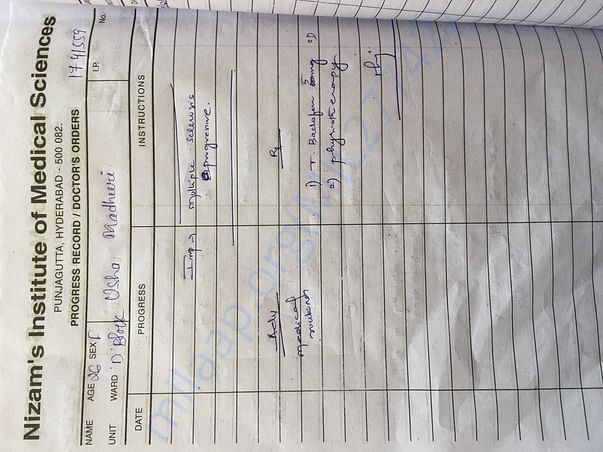 Nizam's Institute of Medical Sciences
PUNJAGUTTA, HYDERABAD - 500 082.
PROGRESS RECORD / DOCTOR'S ORDERS
NAME AGE 26 SEX F I.P. No.
UNIT WARD 'D' Block Usha Madheeri
DATE PROGRESS INSTRUCTIONS
Imp → multiple sclerosis
progressive.
Adv Rx
medical 1) T. Baclofen 5mg
2) physiotherapy
milaap.org/